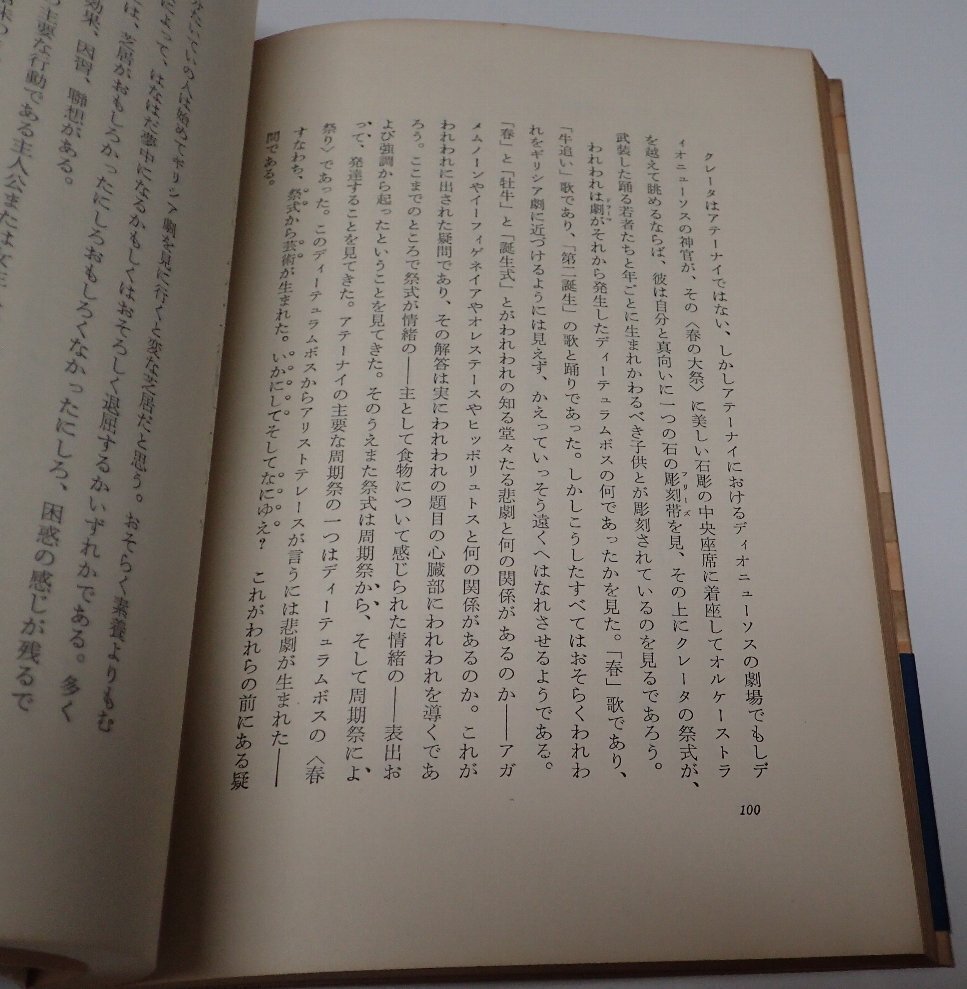 クレータはアテーナイではない、しかしアテーナイにおけるディオニューソスの劇場でもしデ
ィオニューソスの神官が、その〈春の大祭〉に美しい石彫の中央座席に着座してオルケーストラ
を越えて眺めるならば、彼は自分と真向いに一つの石の彫刻帯を見、その上にクレータの祭式が、
フリーズ
武装した踊る若者たちと年ごとに生まれかわるべき子供とが彫刻されているのを見るであろう。
われわれは劇がそれから発生したディーテュラムボスの何であったかを見た。「春」歌であり、
ドラーマ
「牛追い」歌であり、「第二誕生」の歌と踊りであった。しかしこうしたすべてはおそらくわれわ
れをギリシア劇に近づけるようには見えず、かえっていっそう遠くへはなれさせるようである。
「春」と「牡牛」と「誕生式」とがわれわれの知る堂々たる悲劇と何の関係があるのか――アガ
メムノーンやイーフィゲネイアやオレステースやヒッポリュトスと何の関係があるのか。これが
われわれに出された疑問であり、その解答は実にわれわれの題目の心臓部にわれわれを導くであ
ろう。ここまでのところで祭式が情緒の――主として食物について感じられた情緒の――表出お
よび強調から起ったということを見てきた。そのうえまた祭式は周期祭から、そして周期祭によ
って、発達することを見てきた。アテーナイの主要な周期祭の一つはディーテュラムボスの〈春
祭り〉であった。このディーテュラムボスからアリストテレースが言うには悲劇が生まれた――
すなわち、祭式から芸術が生まれた。いかにしてそしてなにゆえ? これがわれらの前にある疑
問である。
100
たいていの人は始めてギリシア劇を見に行くと変な芝居だと思う。おそらく素養よりもむ
によって、はなはだ夢中になるかもしくはおそろしく退屈するかいずれかである。多く
は、芝居がおもしろかったにしろおもしろくなかったにしろ、困惑の感じが残るで
効果、因習、聯想がある。
主要な行動である主人公または女王